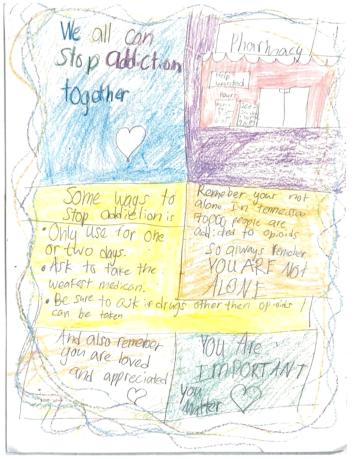 We all can
Stop addiction
together
Pharmacy
Help
wanted
Hours
Some ways to
stop addiction is
• Only use for one
or two days.
• Ask to take the
weakest medican.
• Be sure to ask if drugs other then opioids
can be taken
Remeber your not
alone In Tennessee
people are
addicted to opioids
So always Remeber
YOU ARE NOT
ALONE
And also remeber
you are loved
and appreciated
YOU Are
IMPORTANT
you
Matter